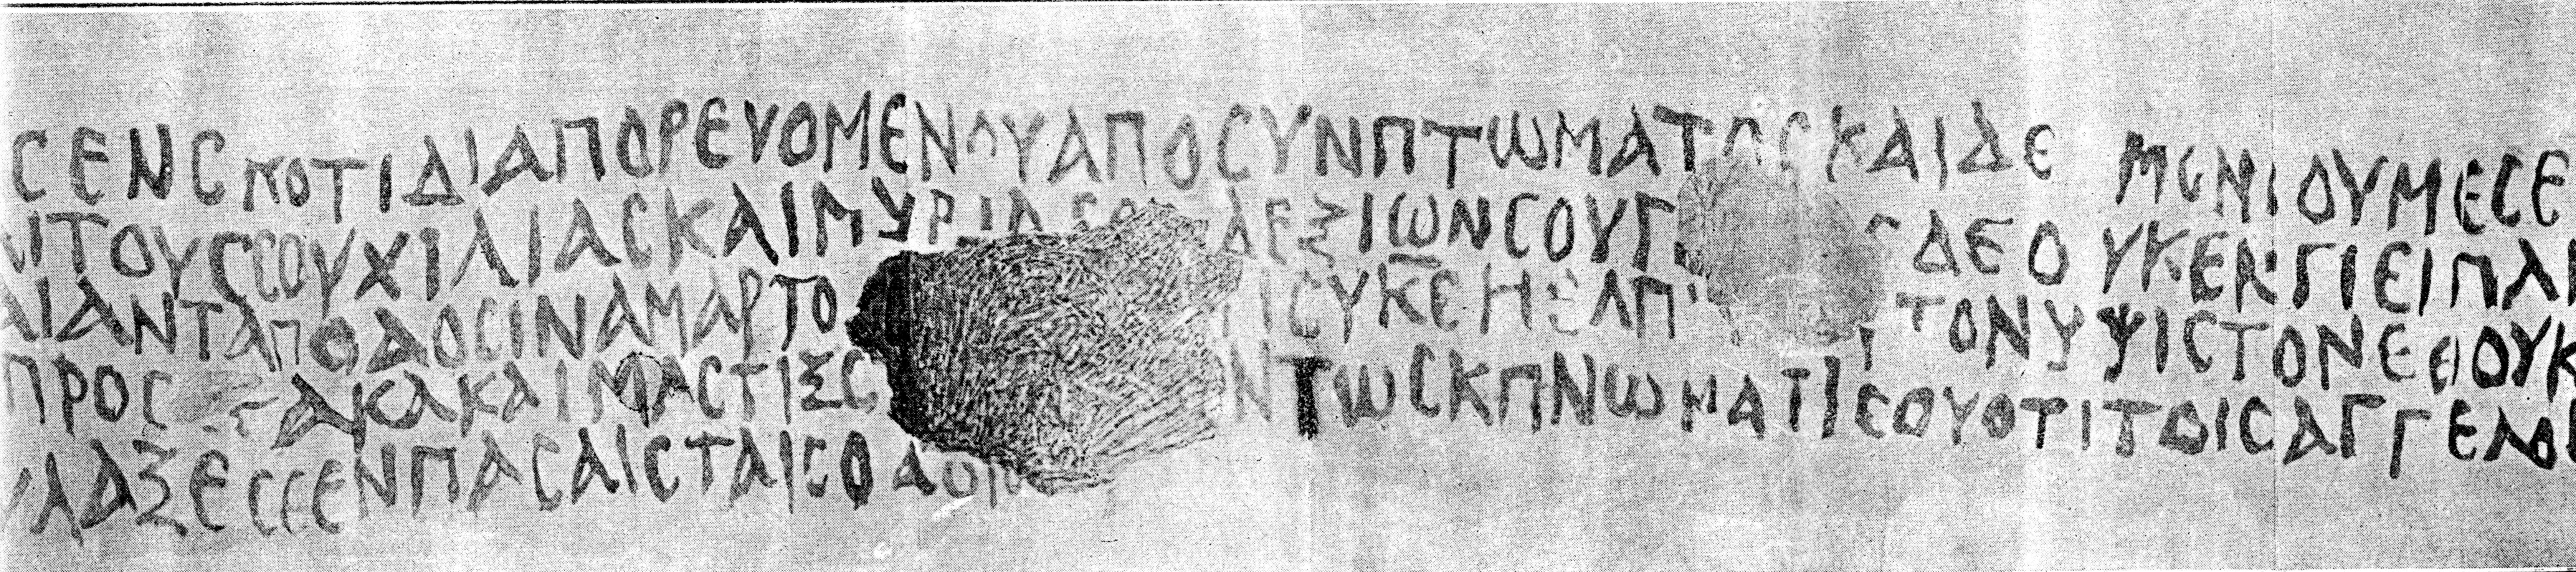 CΕΝCΚΟΤΙΔΙΑΠΟΡΕΥΟΜΕΝΟΥΑΠΟCΥΝΠΤΩΜΑΤΟCΚΑΙΔΕ ΜΟΝΙΟΥΜΕCΕ
ΙΤΟΥCCΟΥΧΙΛΙΑCΚΑΙΜΥΡΙΑC ΔΕΞΙΩΝCΟΥΓ ΔΕΟΥΚΕΝΓΙΕΙΠΛΗ
ΑΙΑΝΤΑΠΟΔΟCΙΝΑΜΑΡΤΟ ΙCΥΚΕΗΕΛΠΙ ΤΟΝΥΨΙCΤΟΝΕΘΟΥΚ
ΠΡΟC CΑΚΑΚΑΙΜΑCΤΙΞC ΝΤΩCΚΠΝΩΜΑΤΙCΟΥΟΤΙΤΟΙCΑΓΓΕΛΟ
ΛΑΞΕCCΕΝΠΑCΑΙCΤΑΙCΟΔΟΙ